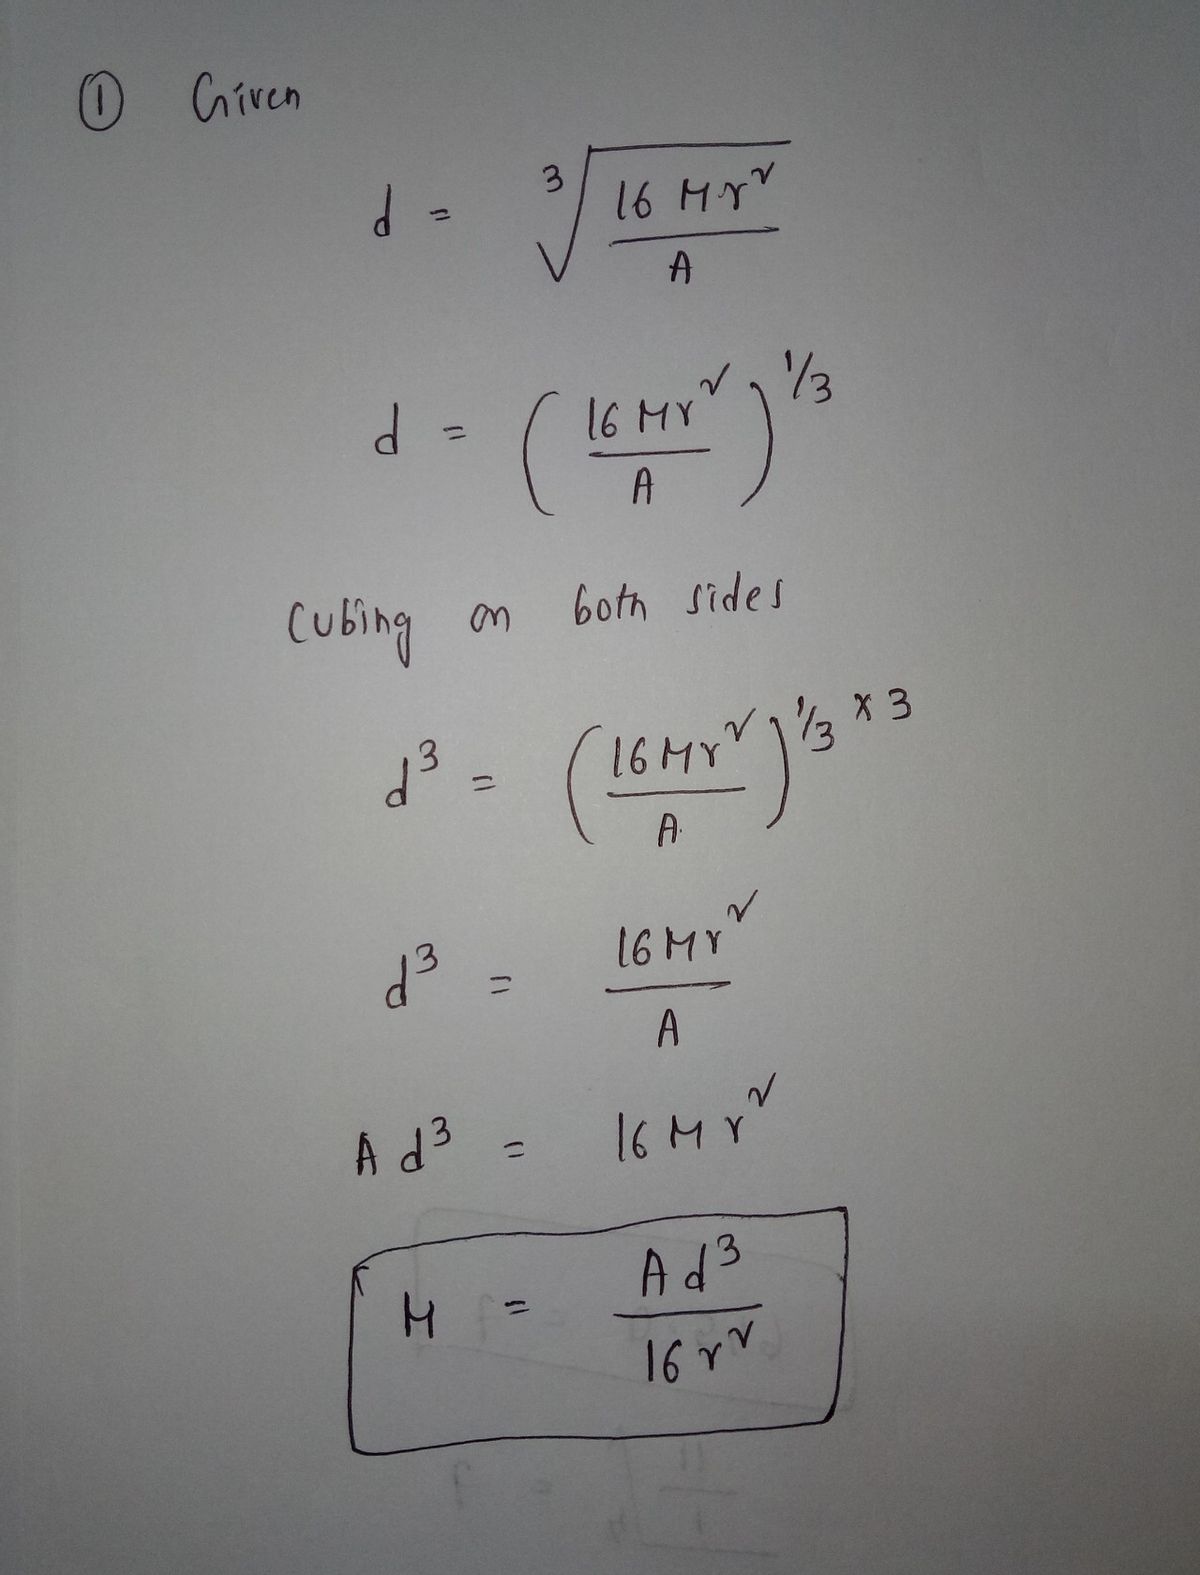 ① Given
d = ∛(16 Mr² / A)
d = (16 Mr² / A)^1/3
Cubing on both sides
d³ = (16 Mr² / A)^1/3 × 3
d³ = 16 Mr² / A
A d³ = 16 M r²
M = A d³ / 16 r²